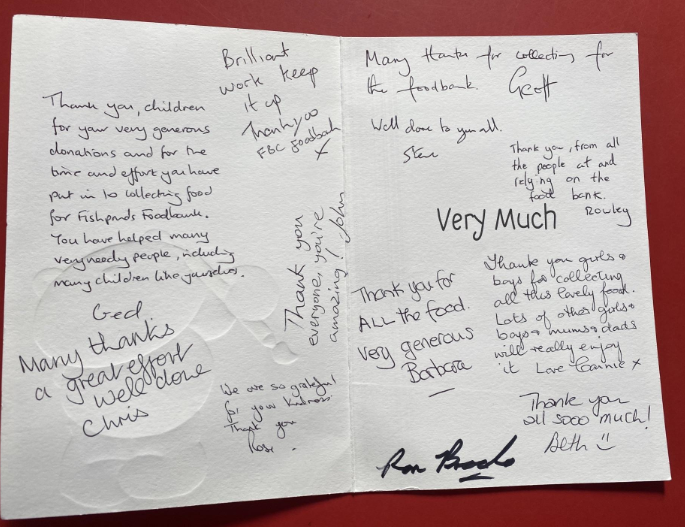 Brilliant
work keep
it up
Thankyou
FBC Foodbank
x
Thank you, children
for your very generous
donations and for the
time and effort you have
put in to collecting food
for Fishponds Foodbank.
You have helped many
very needy people, including
many children like yourselves.
Ged
Many thanks
a great effort
well done
Chris
Thank you
everyone, you're
amazing! John
We are so grateful
for your kindness
Thank you
Rose.
Many thanks for collecting for
the foodbank. Geoff
Well done to you all.
Steve
Thank you, from all
the people at and
relying on the
food bank.
Rowley
Very Much
Thank you for
ALL the food
Very generous
Barbara
Thank you girls &
boys for collecting
all this lovely food.
Lots of other girls &
boys & mums & dads
will really enjoy
it Love Connie x
Thank you
all sooo much!
Beth
Ron